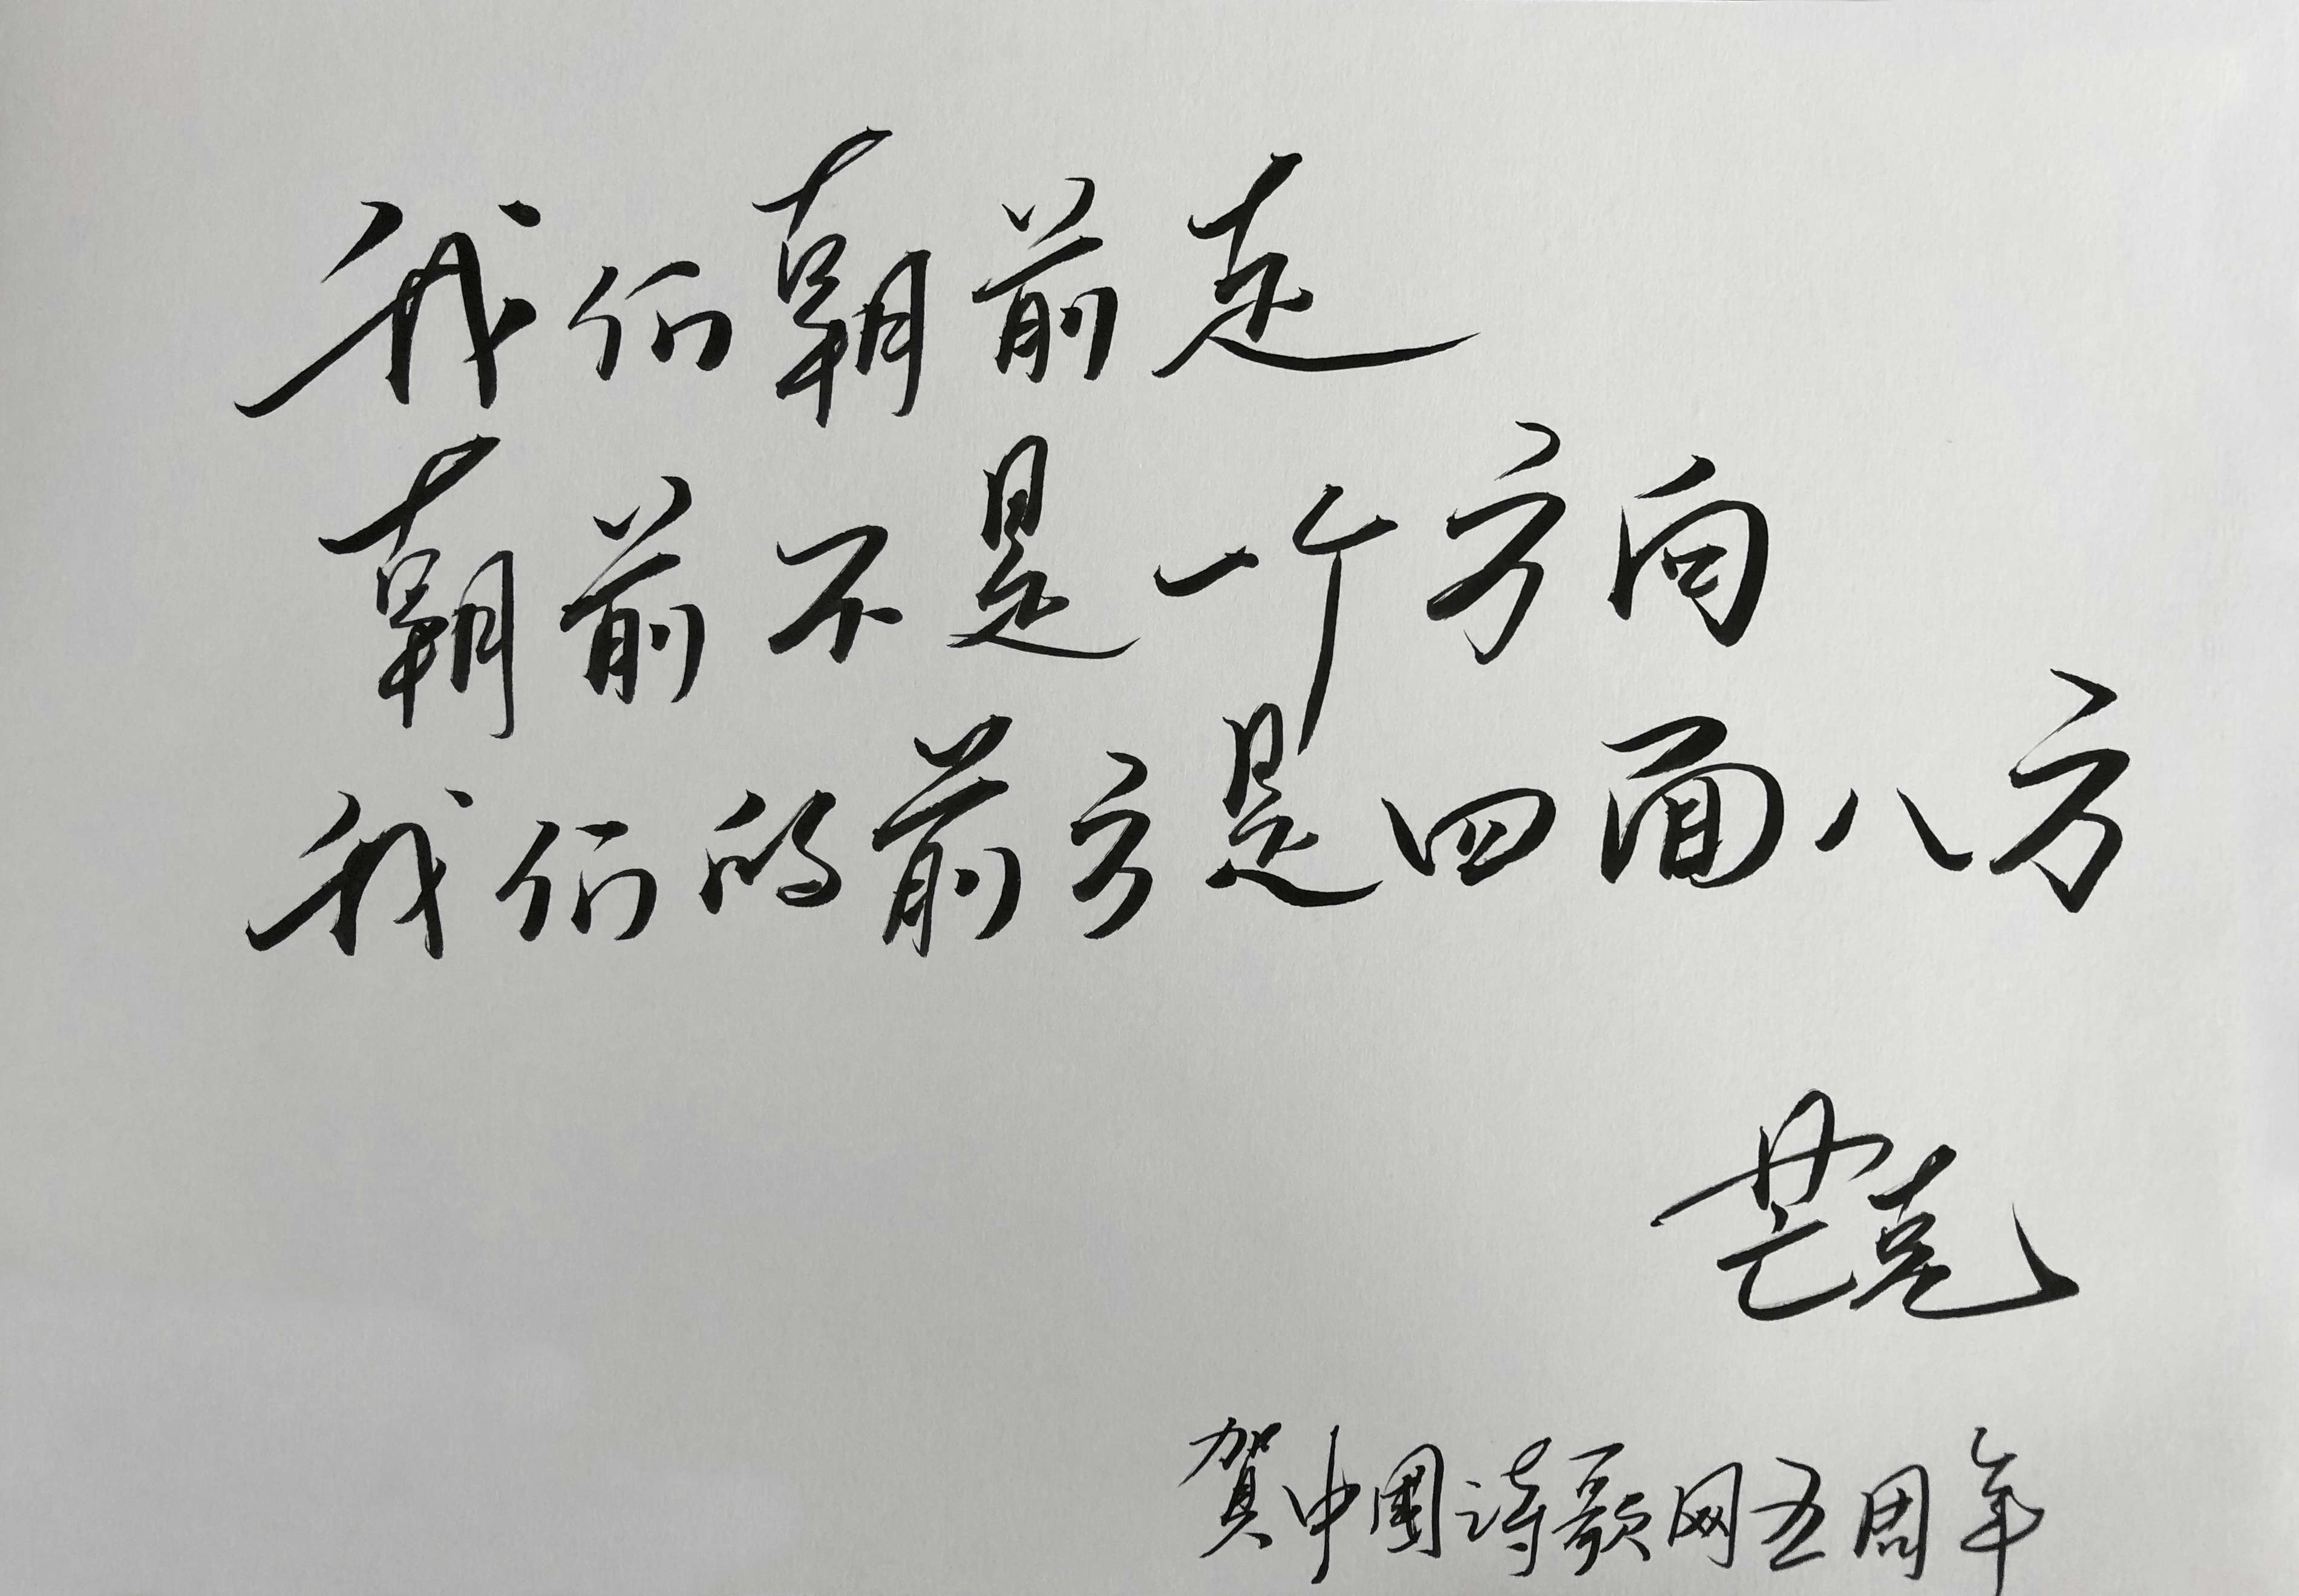 我们朝前走
朝前不是一个方向
我们的前方是四面八方
芒克
贺中国诗歌网五周年